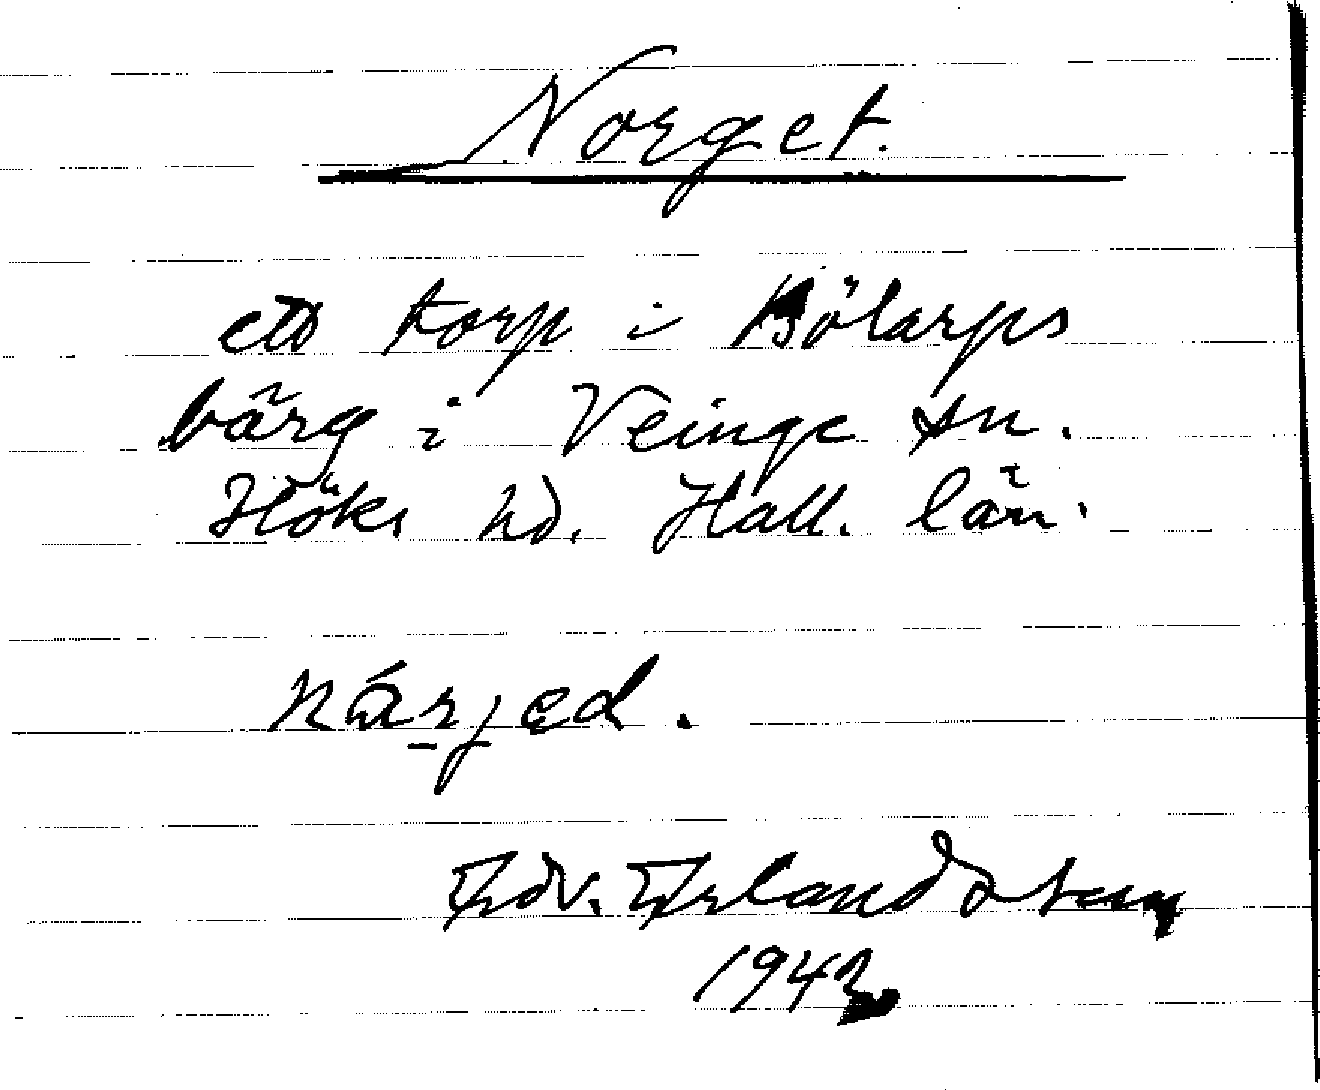 Norget.
ett torp i Bölarps
bärg i Veinge sn.
Höks hd. Hall. län.
nárjed.
Edv.
1943